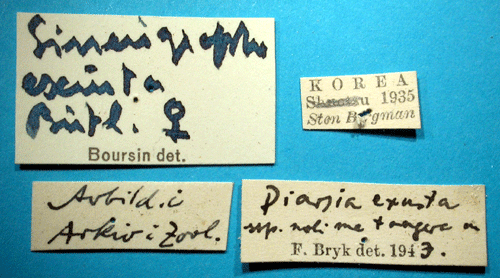 Sineugrapha
exusta
Butl. ♀
Boursin det.
KOREA
1935
Sten Bergman
Avbild. i
Arkiv i Zool.
Diarsia exusta
ssp. noli me tangere
F. Bryk det. 1943.